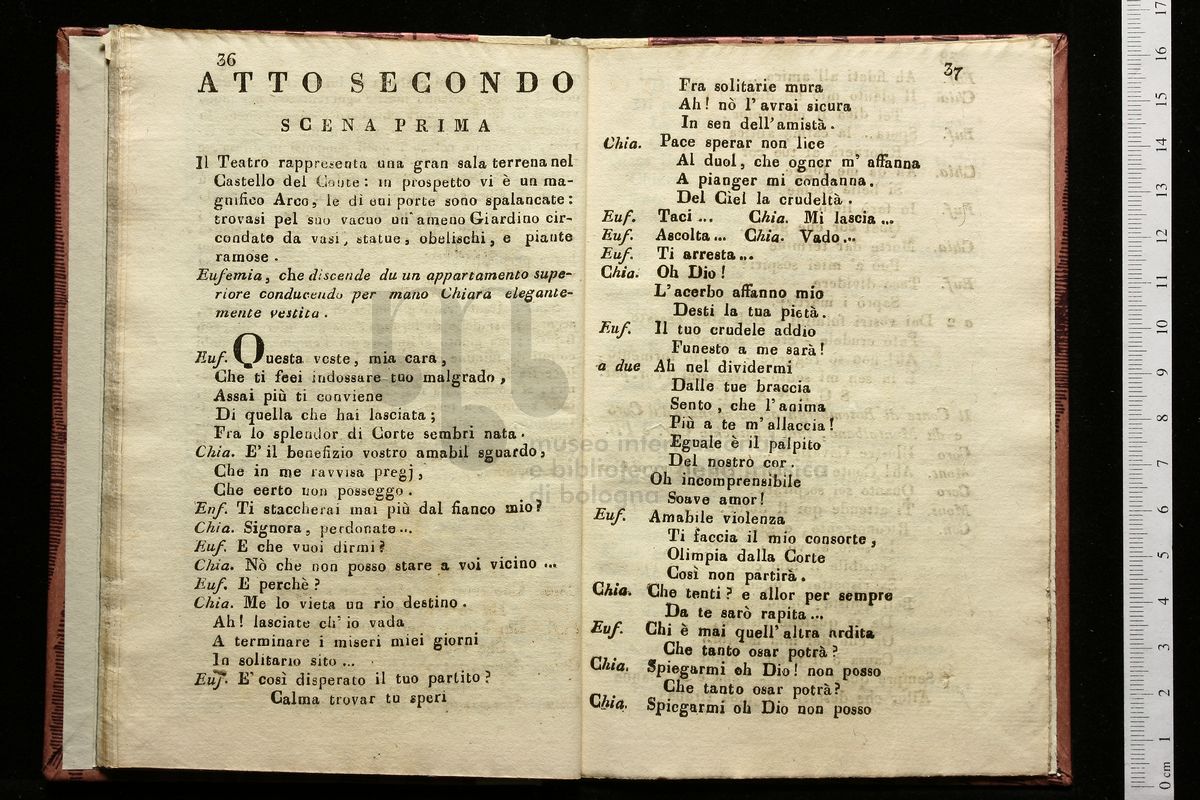 36
ATTO SECONDO
SCENA PRIMA
Il Teatro rappresenta una gran sala terrena nel
Castello del Conte: in prospetto vi è un ma-
gnifico Arco, le di cui porte sono spalancate:
trovasi pel suo vacuo un' ameno Giardino cir-
condato da vasi, statue, obelischi, e piante
ramose.
Eufemia, che discende du un appartamento supe-
riore conducendo per mano Chiara elegante-
mente vestita.
Euf. Questa veste, mia cara,
Che ti feei indossare tuo malgrado,
Assai più ti conviene
Di quella che hai lasciata;
Fra lo splendor di Corte sembri nata.
Chia. E' il benefizio vostro amabil sguardo,
Che in me ravvisa pregj,
Che eerto non posseggo.
Enf. Ti staccherai mai più dal fianco mio?
Chia. Signora, perdonate...
Euf. E che vuoi dirmi?
Chia. Nò che non posso stare a voi vicino ...
Euf. E perchè?
Chia. Me lo vieta un rio destino.
Ah! lasciate ch' io vada
A terminare i miseri miei giorni
In solitario sito ...
Euf. E' così disperato il tuo partito?
Calma trovar tu speri
37
Fra solitarie mura
Ah! nò l' avrai sicura
In sen dell' amistà.
Chia. Pace sperar non lice
Al duol, che ogner m' affanna
A pianger mi condanna.
Del Ciel la crudeltà.
Euf. Taci ... Chia. Mi lascia ...
Euf. Ascolta... Chia. Vado...
Euf. Ti arresta...
Chia. Oh Dio!
L' acerbo affanno mio
Desti la tua pietà.
Euf. Il tuo crudele addio
Funesto a me sarà!
a due Ah nel dividermi
Dalle tue braccia
Sento, che l' anima
Più a te m' allaccia!
Eguale è il palpito
Del nostrò cor.
Oh incomprensibile
Soave amor!
Euf. Amabile violenza
Ti faccia il mio consorte,
Olimpia dalla Corte
Così non partirà.
Chia. Che tenti? e allor per sempre
Da te sarò rapita...
Euf. Chi è mai quell' altra ardita
Che tanto osar potrà?
Chia. Spiegarmi oh Dio! non posso
Che tanto osar potrà?
Chia. Spiegarmi oh Dio non posso
museo internazionale
e biblioteca della musica
di bologna
0 cm 1 2 3 4 5 6 7 8 9 10 11 12 13 14 15 16 17